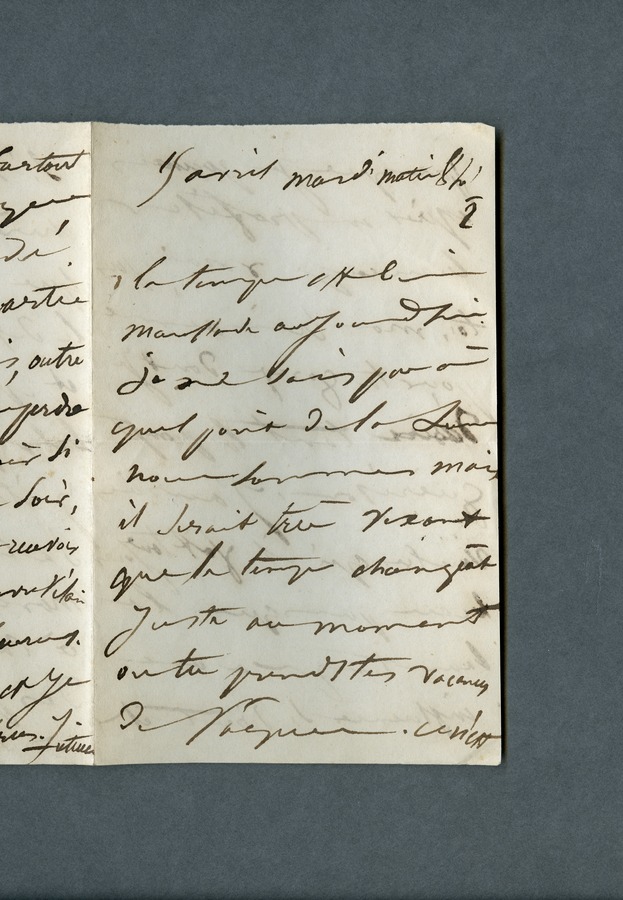 artout
dé
partie
, outre
perdre
si
soir,
et je
15 avril mardi matin 8h ½
le temps est bien
maussade aujourd'hui
je ne sais pas à
quel point de la lune
nous sommes mais
il serait très vexant
que le temps changeât
juste au moment
où tu prends tes vacances
de Pâques. Ce n'est